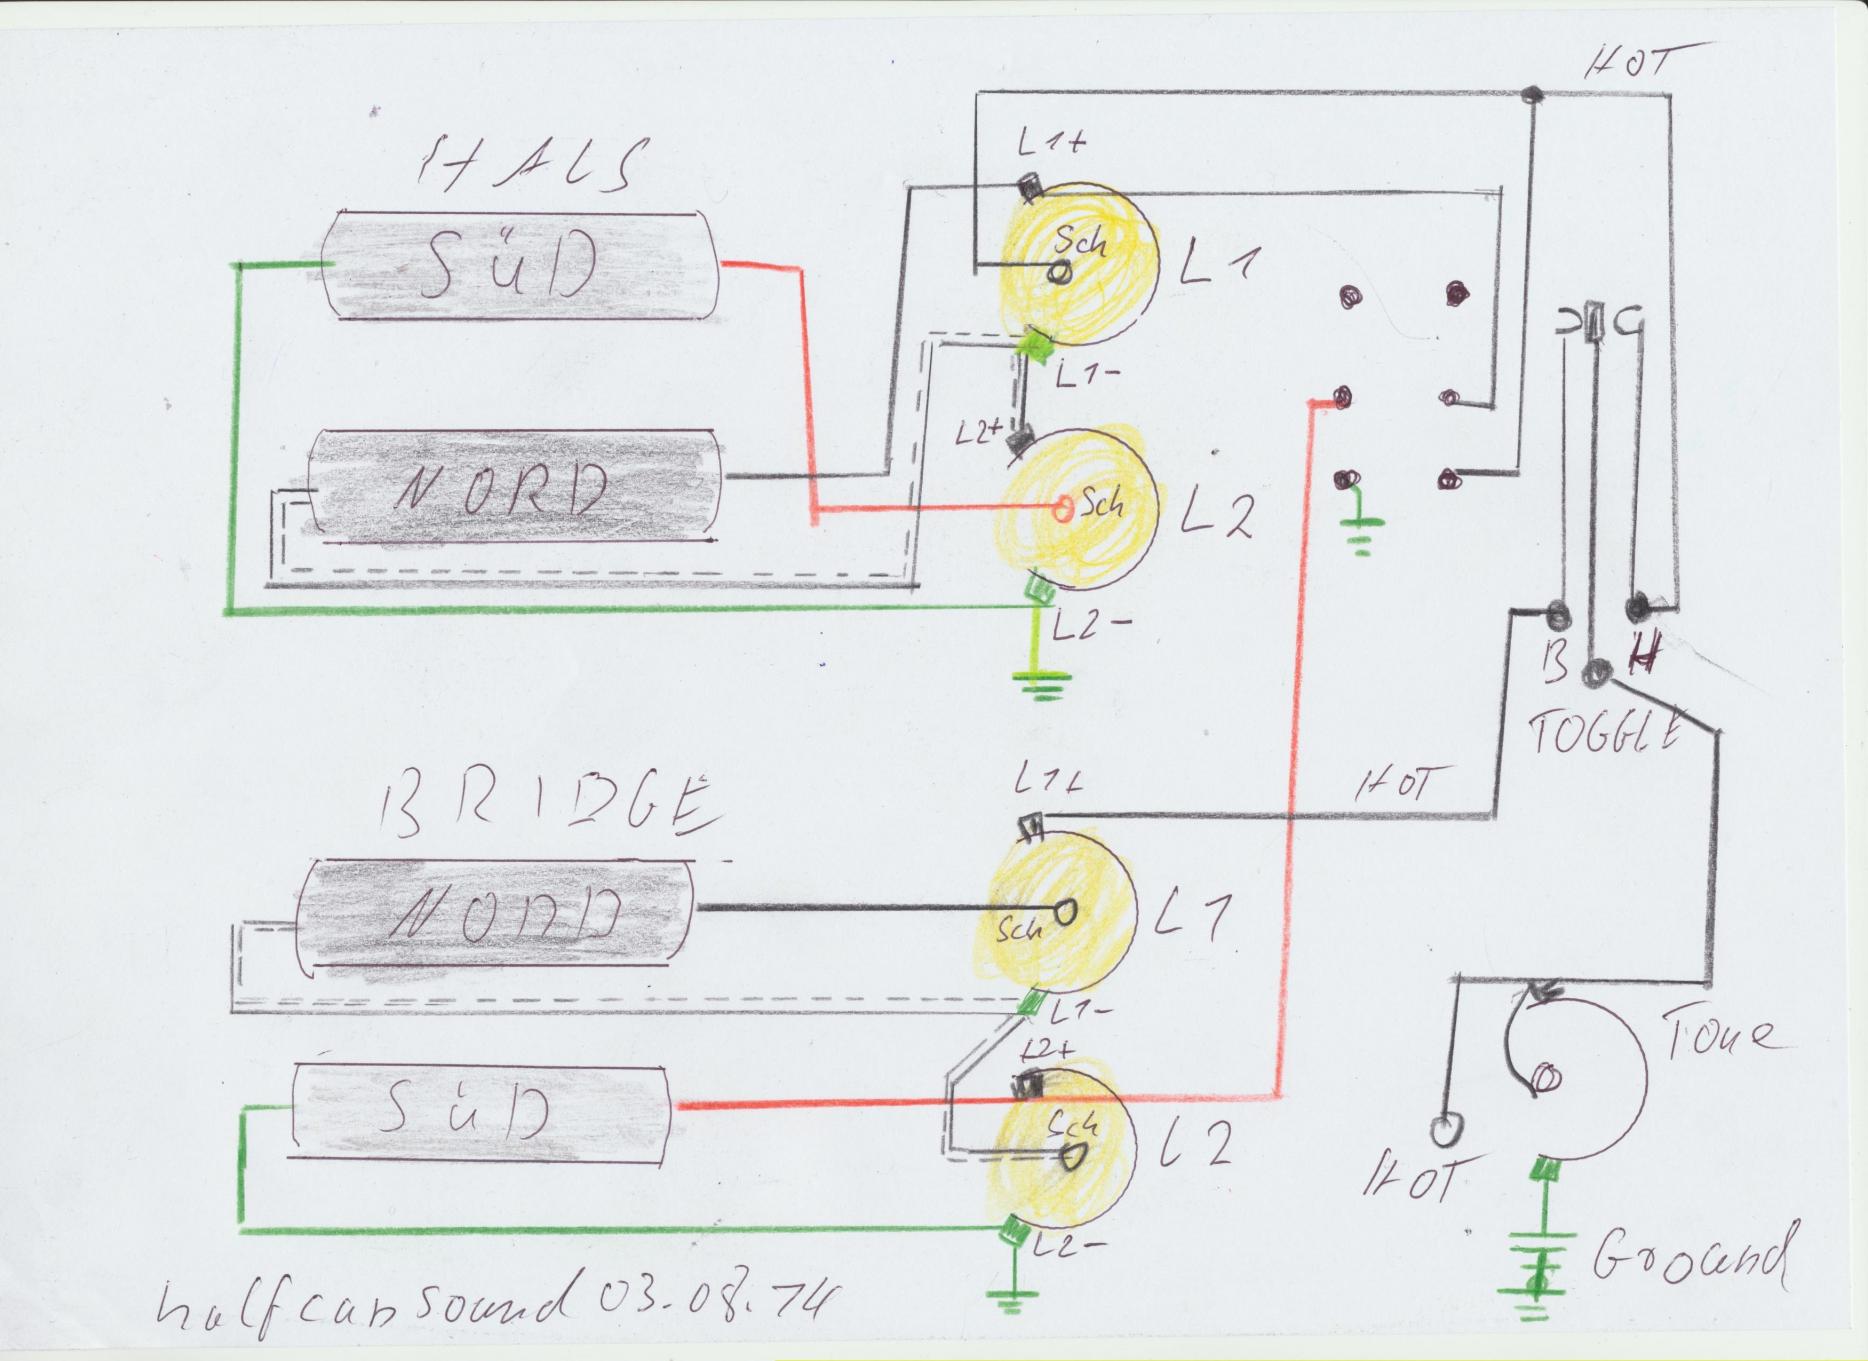 HOT
HALS
L1+
SÜD
Sch
L1
L1-
L2+
NORD
Sch
L2
L2-
B H
TOGGLE
BRIDGE
L1+
HOT
NORD
Sch
L1
L1-
L2+
SÜD
Sch
L2
L2-
Tone
HOT
Ground
halfcansound 03.08.14